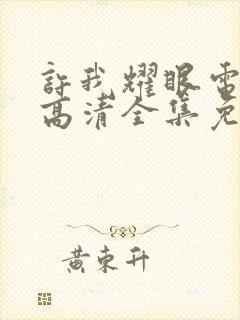 許我耀眼電
高清全集免
黃東升